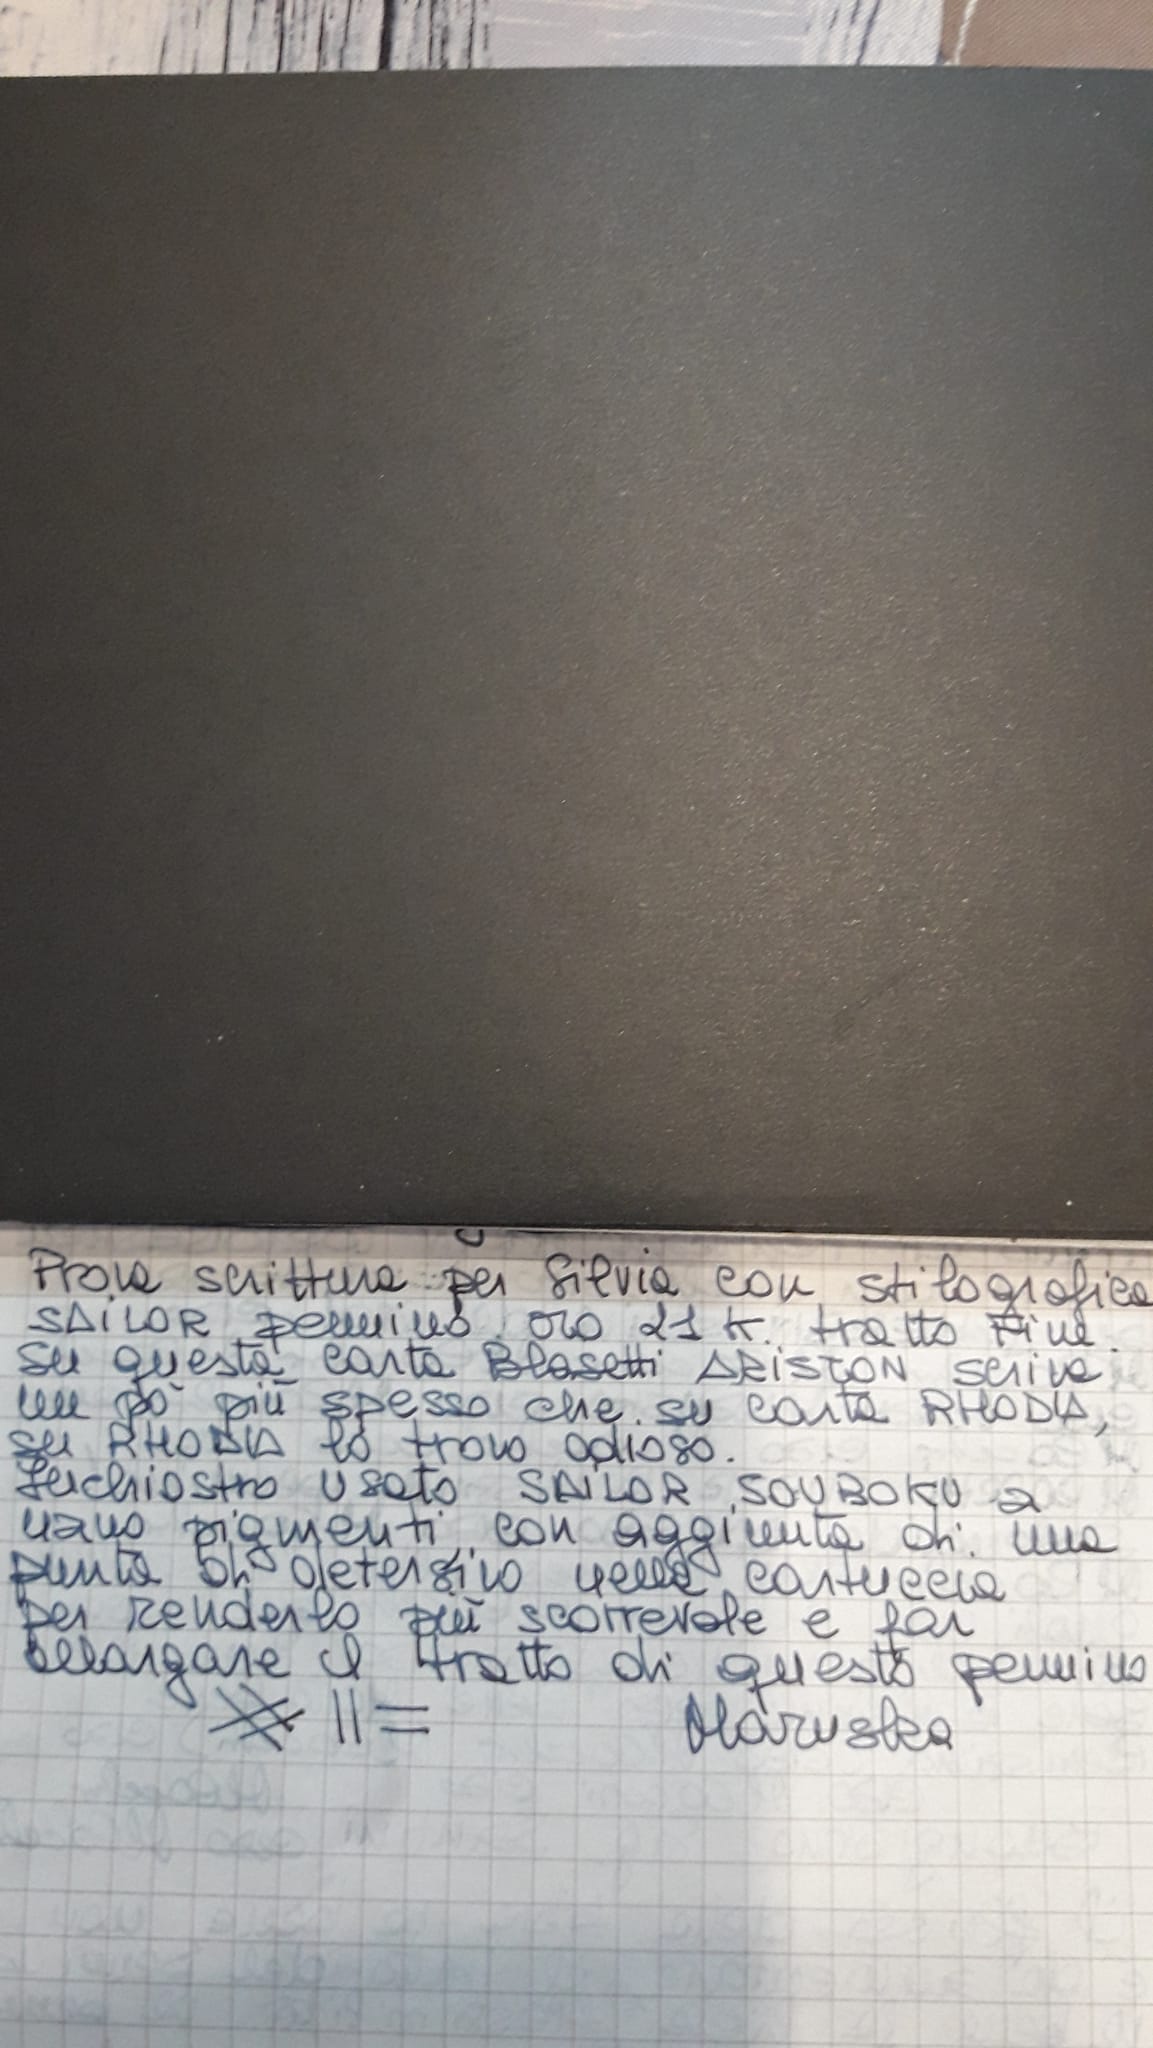 Prova scrittura per Silvia con stilografica
SAILOR pennino oro 21 K. tratto Fine.
Su questa carta Blasetti ARISTON scrive
un pò più spesso che su carta RHODIA,
su RHODIA lo trovo odioso.
Inchiostro usato SAILOR SOUBOKU a
nano pigmenti con aggiunta di una
punta di detersivo nella cartuccia
per renderlo più scorrevole e far
allargare il tratto di questo pennino
Maruska